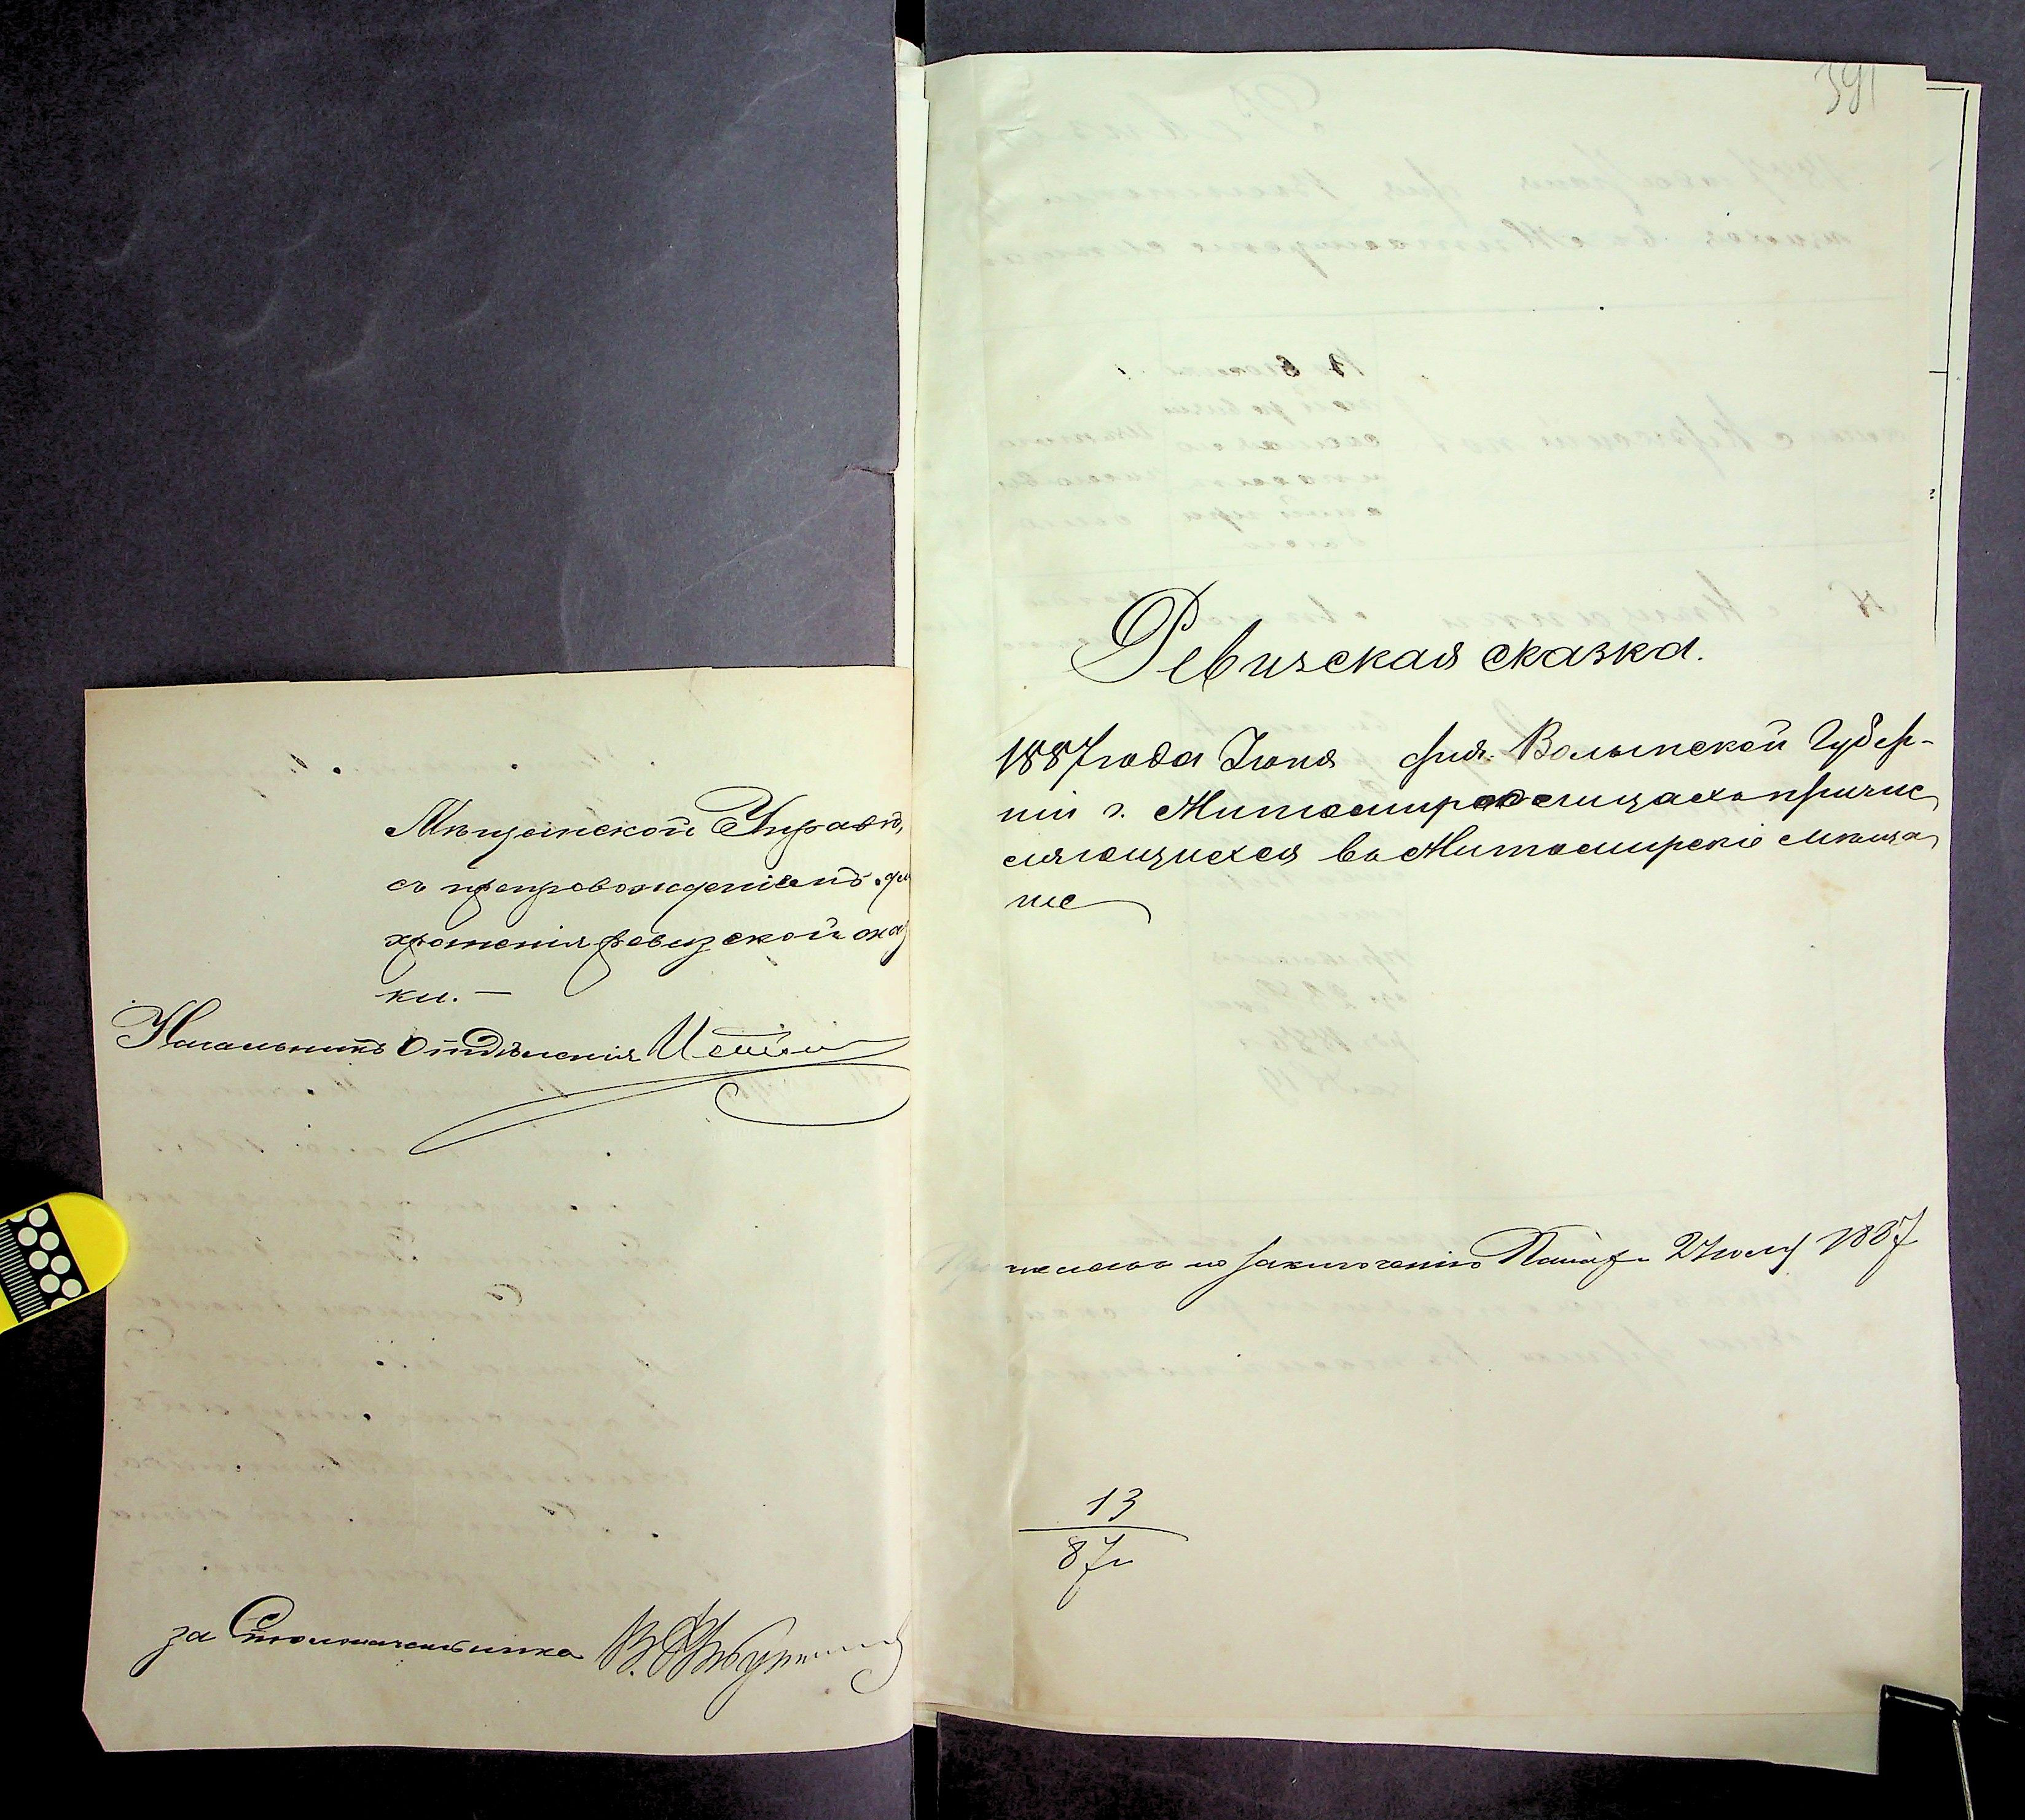 Мѣщанской Управѣ,
съ препровожденіемъ для
храненія ревизской сказ
ки. —
Начальникъ Отдѣленія
за Столоначальника
391
Ревизская сказка.
1887 года Іюня дня. Волынской Губер-
ніи г. Житомира о лицахъ причис
ляющихся въ Житомирскіе мѣща
не
по заключенію Палаты 2 Іюля 1887
13
87 г